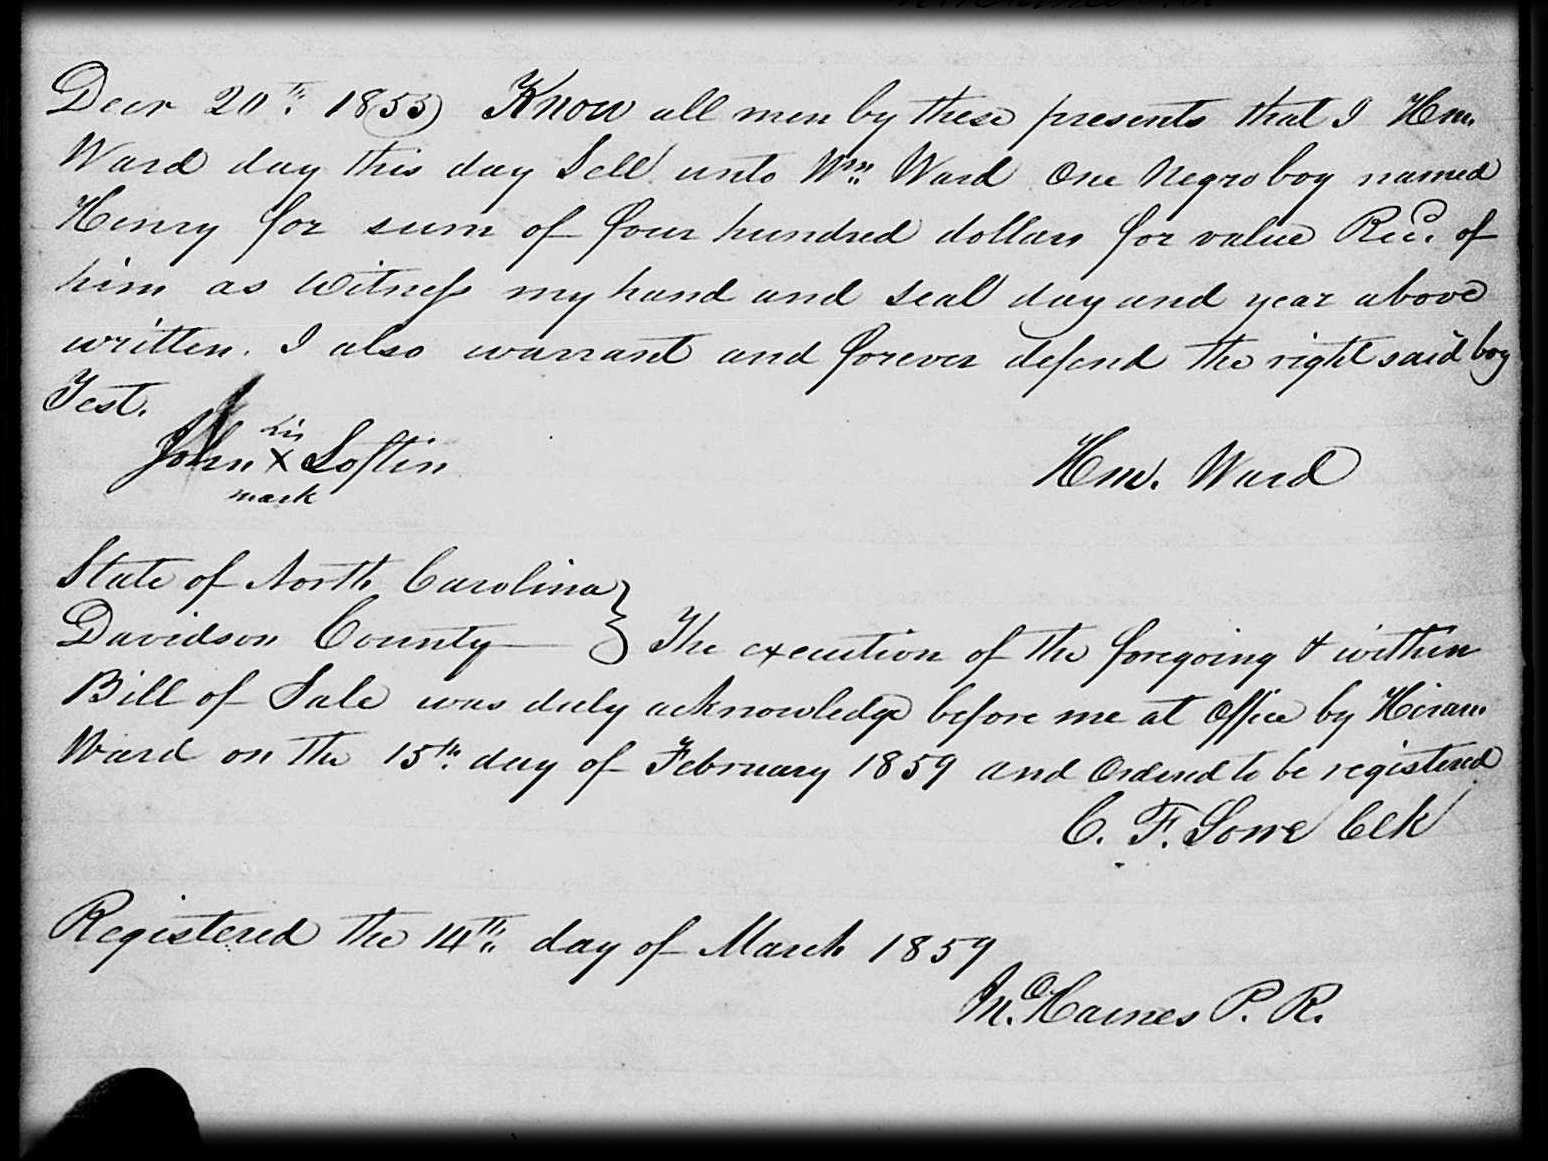 Decr 20th 1855 Know all men by these presents that I Hm.
Ward day this day Sell unto Wm. Ward One Negro boy named
Henry for sum of four hundred dollars for value Recd. of
him as witness my hand and seal day and year above
written. I also warrant and forever defend the right said boy
Test.
John his X mark Loftin
Hm. Ward
State of North Carolina }
Davidson County } The execution of the foregoing & within
Bill of Sale was duly acknowledge before me at office by Hiram
Ward on the 15th day of February 1859 and Ordered to be registered
C. F. Lowe Clk
Registered the 14th day of March 1859
M. Haines P. R.